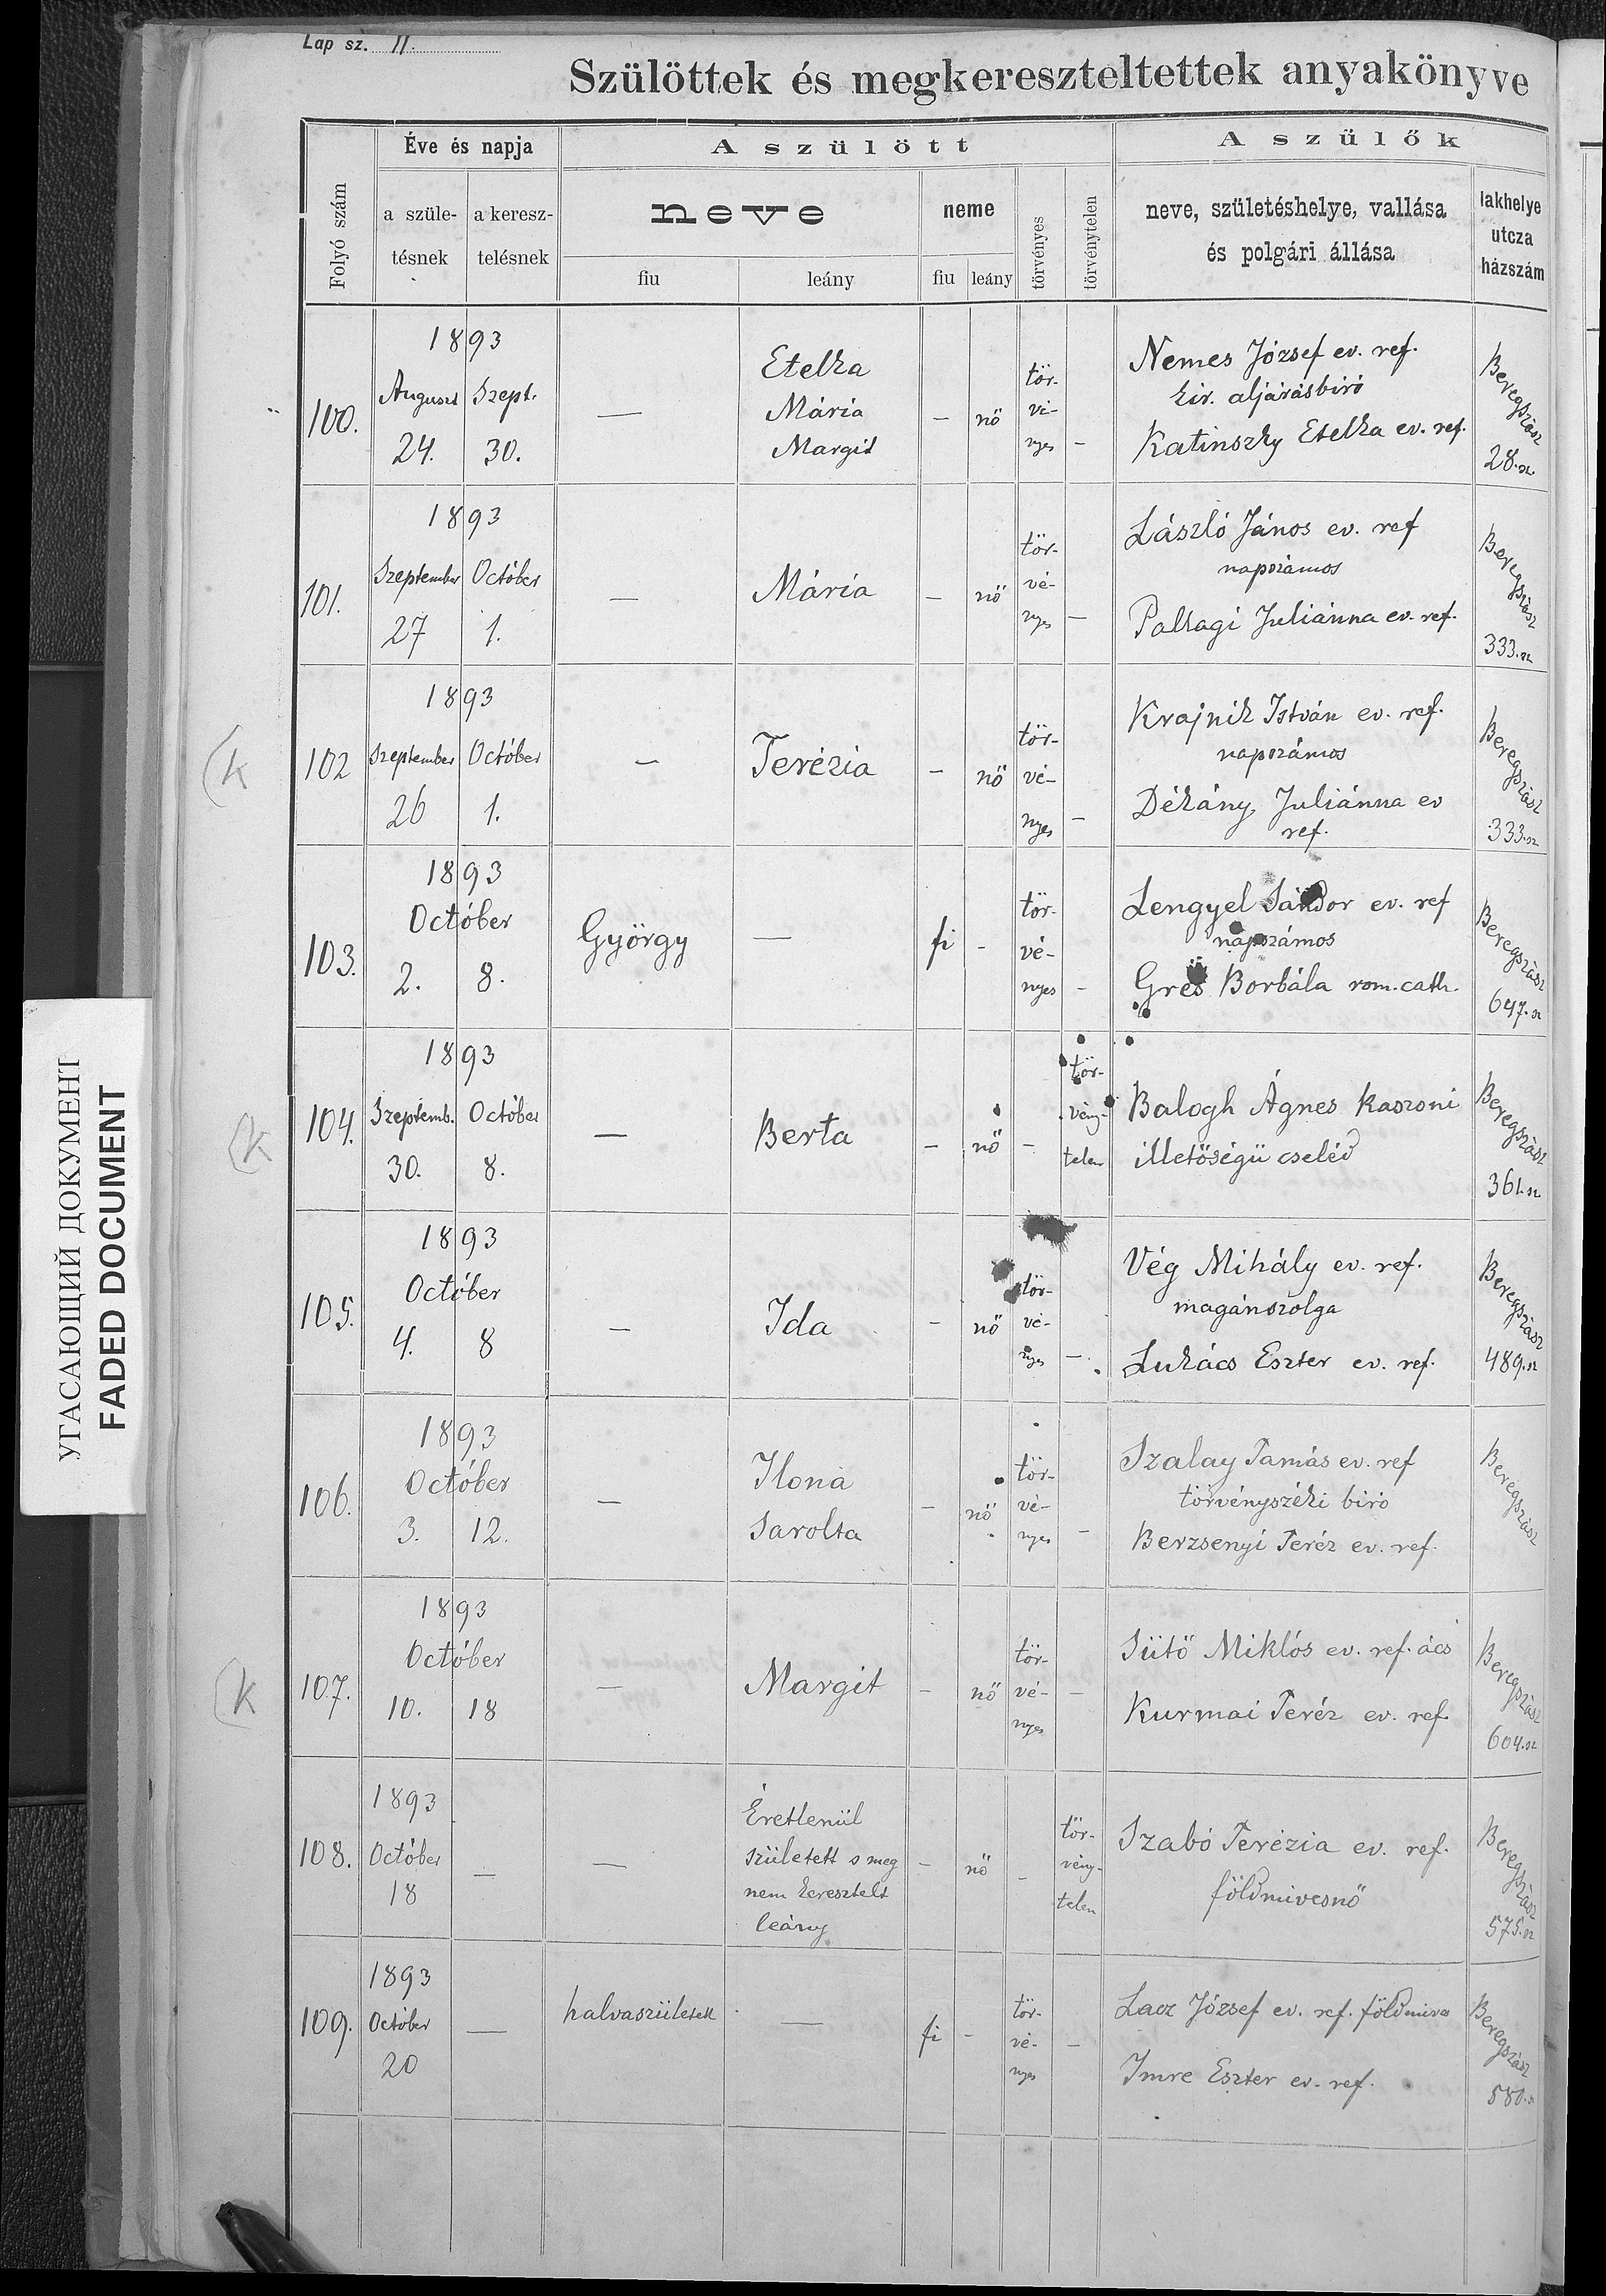 Lap sz. 11.
Szülöttek és megkereszteltettek anyakönyve
Folyó szám
Éve és napja
a születésnek
a keresztelésnek
A szülött
neve
fiu
leány
neme
fiu
leány
törvényes
törvénytelen
A szülők
neve, születéshelye, vallása
és polgári állása
lakhelye
utcza
házszám
100.
1893
August
24.
Szept.
30.
—
Etelka
Mária
Margit
—
nő
tör-
vé-
nyes
—
Nemes József ev. ref.
kir. aljárásbiró
Katinszky Etelka ev. ref.
Beregszász
28. sz.
101.
1893
Szeptember
27
Octóber
1.
—
Mária
—
nő
tör-
vé-
nyes
—
László János ev. ref
napszámos
Pallagi Juliánna ev. ref.
Beregszász
333. sz
(K
102
1893
Szeptember
26
Octóber
1.
—
Terézia
—
nő
tör-
vé-
nyes
—
Krajnik István ev. ref.
napszámos
Dékány Juliánna ev
ref.
Beregszász
333. sz
103.
1893
Octóber
2.
8.
György
—
fi
-
tör-
vé-
nyes
-
Lengyel Sándor ev. ref
napszámos
Borbála rom. cath.
Beregszász
647. sz
(K
104.
1893
Szeptemb.
30.
Octóber
8.
—
Berta
—
nő
—
tör-
vény-
telen
Balogh Ágnes Kaszoni
illetőségü cseléd
Beregszász
361. sz
105.
1893
Octóber
4.
8
—
Ida
-
nő
tör-
vé-
nyes
—
Vég Mihály ev. ref.
magánszolga
Lukács Eszter ev. ref.
Beregszász
489. sz
106.
1893
Octóber
3.
12.
—
Ilona
Sarolta
—
nő
tör-
vé-
nyes
-
Szalay Tamás ev. ref
törvényszéki biró
Berzsenyi Teréz ev. ref.
Beregszász
(K
107.
1893
Octóber
10.
18
—
Margit
—
nő
tör-
vé-
nyes
—
Sütő Miklós ev. ref. ács
Kurmai Teréz ev. ref.
Beregszász
604. sz
108.
1893
Octóber
18
—
—
Éretlenül
született s meg
nem keresztelt
leány
-
nő
-
tör-
vény-
telen
Szabó Terézia ev. ref.
földmivesnő
Beregszász
575. sz
109.
1893
Octóber
20
—
halvaszületett
—
fi
-
tör-
vé-
nyes
—
József ev. ref. földmives
Imre Eszter ev. ref.
Beregszász
580. sz
УГАСАЮЩИЙ ДОКУМЕНТ
FADED DOCUMENT